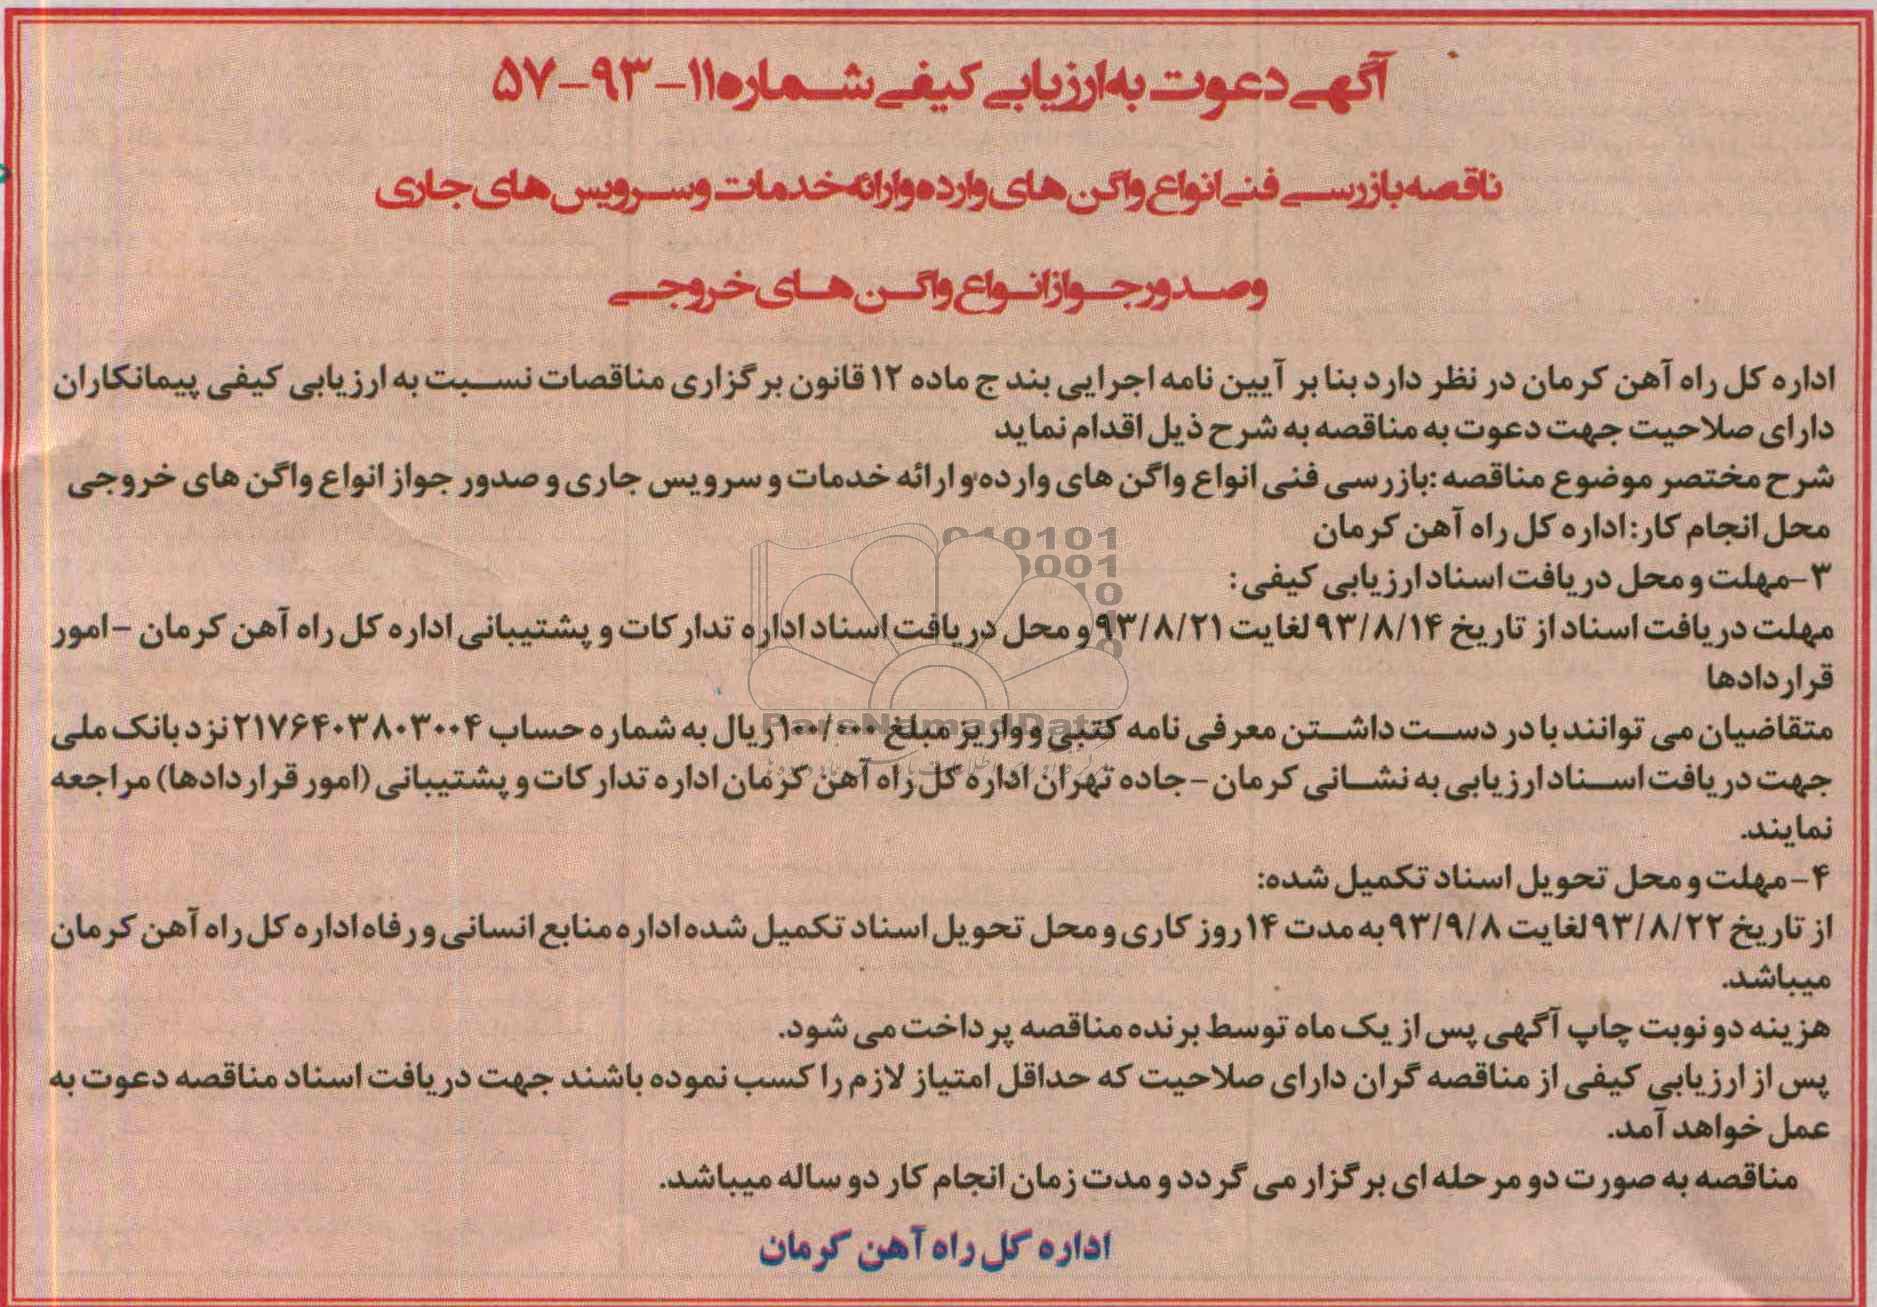 آگهی دعوت به ارزیابی کیفی شماره ۱۱-۹۳-۵۷
ناقصه بازرسی فنی انواع واگن های وارده وارائه خدمات وسرویس های جاری
وصدور جواز انواع واگن های خروجی
اداره کل راه آهن کرمان در نظر دارد بنا بر آیین نامه اجرایی بند ج ماده ۱۲ قانون برگزاری مناقصات نسبت به ارزیابی کیفی پیمانکاران
دارای صلاحیت جهت دعوت به مناقصه به شرح ذیل اقدام نماید
شرح مختصر موضوع مناقصه :بازرسی فنی انواع واگن های وارده و ارائه خدمات و سرویس جاری و صدور جواز انواع واگن های خروجی
محل انجام کار: اداره کل راه آهن کرمان
۳-مهلت و محل دریافت اسناد ارزیابی کیفی:
مهلت دریافت اسناد از تاریخ ۹۳/۸/۱۴ لغایت ۹۳/۸/۲۱ و محل دریافت اسناد اداره تدارکات و پشتیبانی اداره کل راه آهن کرمان -امور
قراردادها
متقاضیان می توانند با در دست داشتن معرفی نامه کتبی و واریز مبلغ ۱۰۰/۰۰۰ ریال به شماره حساب ۲۱۷۶۴۰۳۸۰۳۰۰۴ نزد بانک ملی
جهت دریافت اسناد ارزیابی به نشانی کرمان -جاده تهران اداره کل راه آهن کرمان اداره تدارکات و پشتیبانی (امور قراردادها) مراجعه
نمایند.
۴-مهلت و محل تحویل اسناد تکمیل شده:
از تاریخ ۹۳/۸/۲۲ لغایت ۹۳/۹/۸ به مدت ۱۴ روز کاری و محل تحویل اسناد تکمیل شده اداره منابع انسانی و رفاه اداره کل راه آهن کرمان
میباشد.
هزینه دو نوبت چاپ آگهی پس از یک ماه توسط برنده مناقصه پرداخت می شود.
پس از ارزیابی کیفی از مناقصه گران دارای صلاحیت که حداقل امتیاز لازم را کسب نموده باشند جهت دریافت اسناد مناقصه دعوت به
عمل خواهد آمد.
مناقصه به صورت دو مرحله ای برگزار می گردد و مدت زمان انجام کار دو ساله میباشد.
اداره کل راه آهن کرمان
ParsNamadData